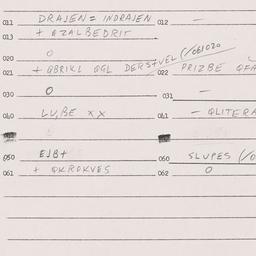 011 DRAJEN = INDRAJEN 012 —
013 + QZALBEDRIT
020 0
021 + QBRIKL QGL DERSTVEL (/061020 022 PRIZBE QFA
030 0 031 —
040 LUBE XX 041 — QLITERA
050 EJB+ 060 SLUPES (/0
061 + QKROKVES 062 0